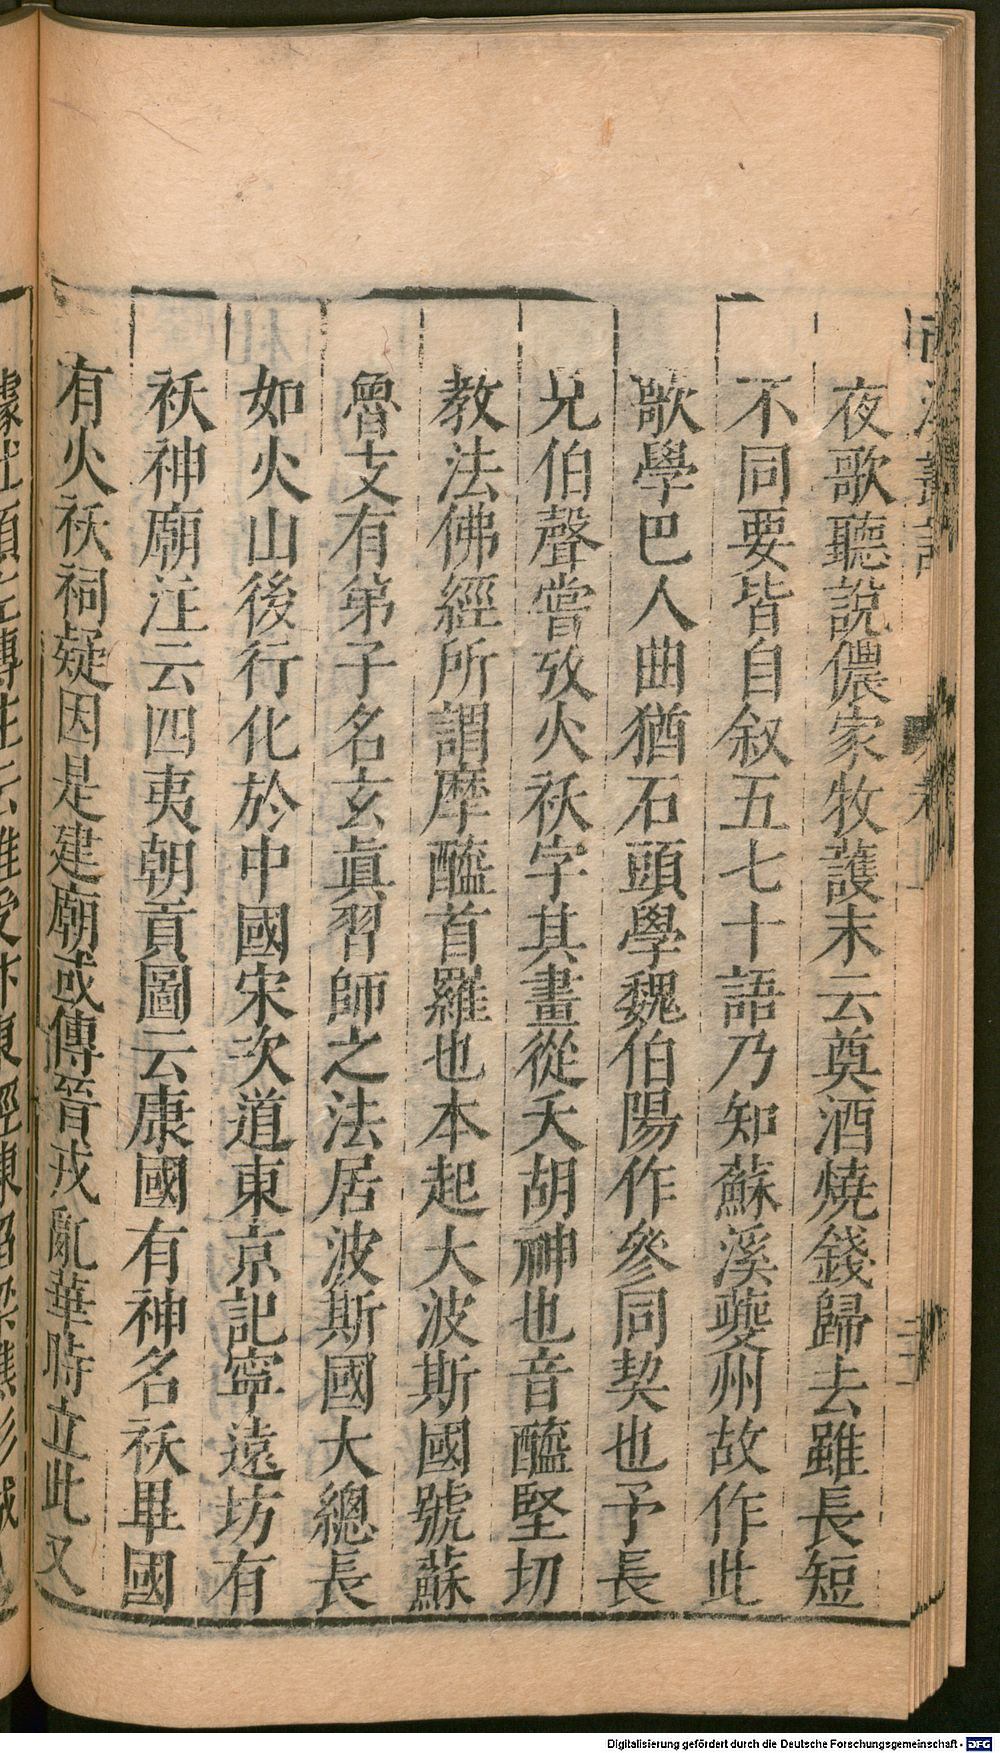 夜歌聽說儂家牧護末云奠酒燒錢歸去雖長短
不同要皆自叙五七十語乃知蘇溪夔州故作此
歌學巴人曲猶石頭學魏伯陽作參同契也予長
兄伯聲嘗攷火祅字其畫從天胡神也音醯堅切
教法佛經所謂摩醯首羅也本起大波斯國號蘇
魯支有弟子名玄眞習師之法居波斯國大總長
如火山後行化於中國宋次道東京記寧遠坊有
祅神廟注云四夷朝貢圖云康國有神名祅畢國
有火祅祠疑因是建廟或傳晉戎亂華時立此又
Digitalisierung gefördert durch die Deutsche Forschungsgemeinschaft - DFG